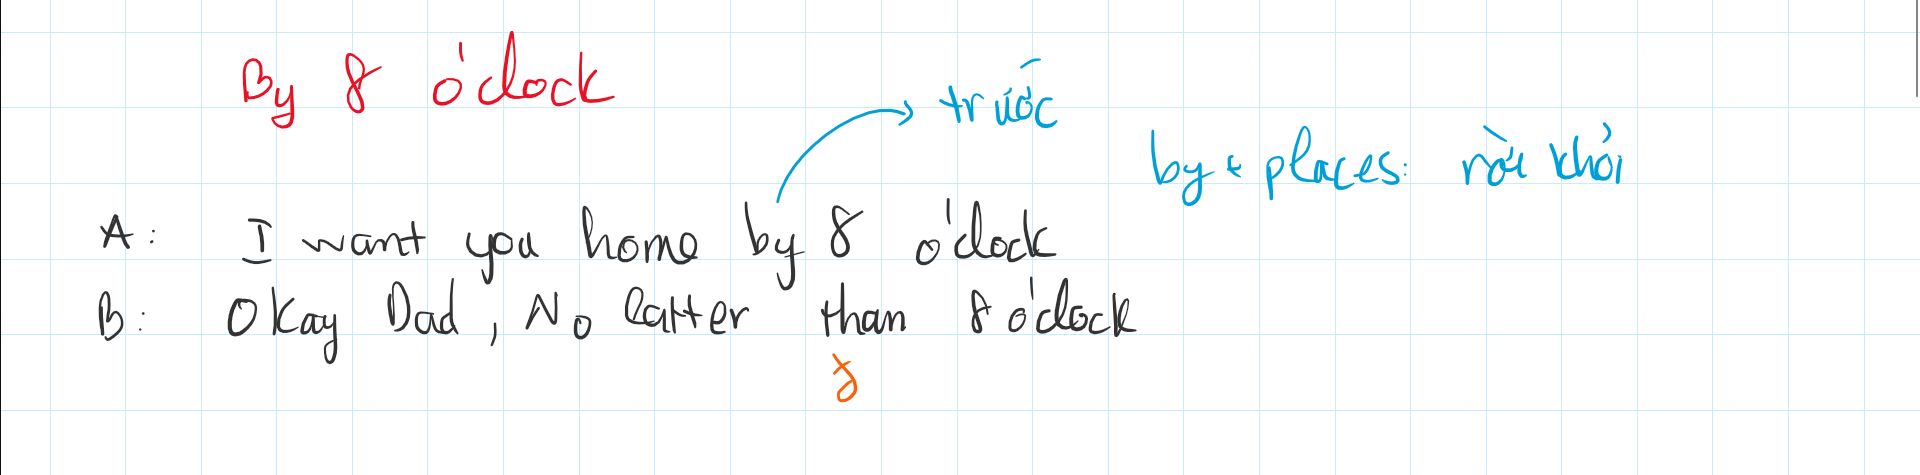 By 8 o'clock
trước
by + places: rời khỏi
A: I want you home by 8 o'clock
B: Okay Dad, No latter than 8 o'clock